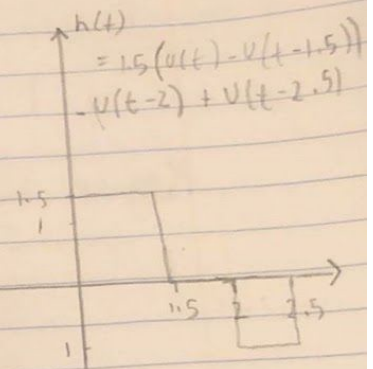 h(t)
= 1.5(u(t) - u(t-1.5))
- u(t-2) + u(t-2.5)
1.5
1
1.5 2 2.5
1